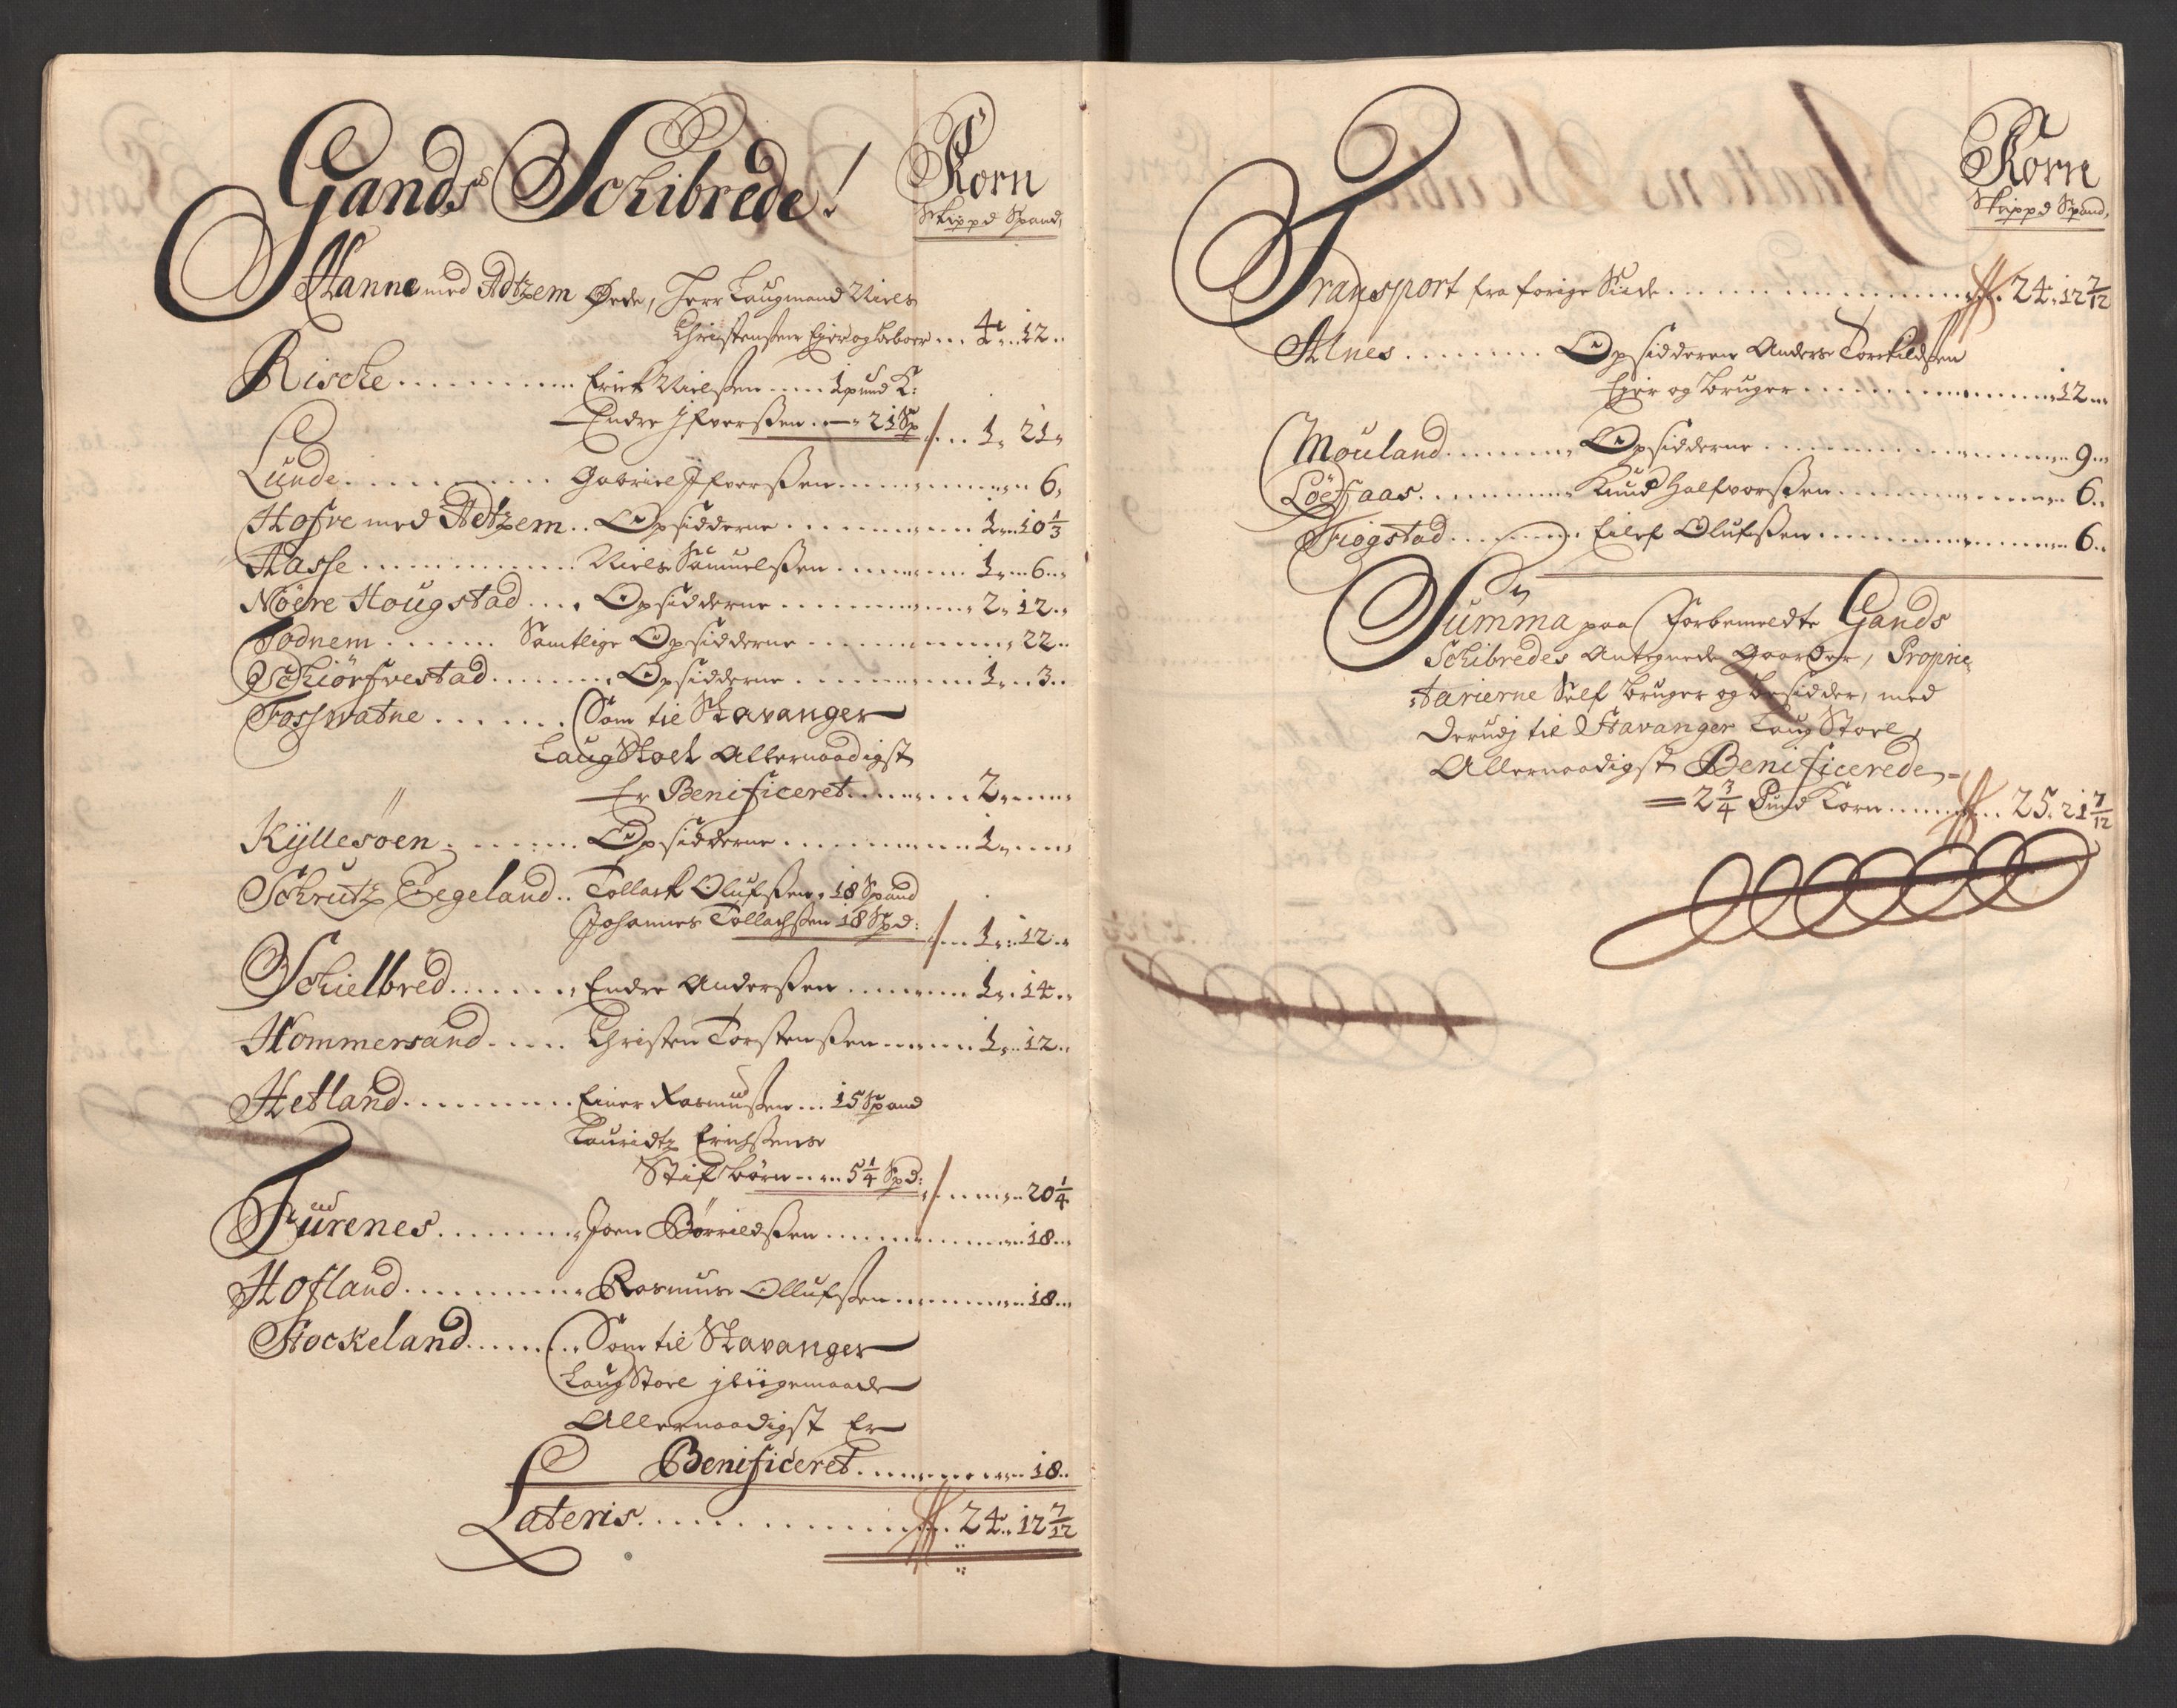 Gands Schibrede!
Korn
Skippd Spand,
Hanne med Adtzem Øede, Herr Laugmand Niels
Christensen Ejer og beboer ... 4 .. 12 ..
Rische ........ Erich Nielsen ..... 1 pund K:
Endre Ifversen .—" 21 Sp /... 1, 21"
Lunde ......... Gabriel Ifversen ............ 6,
Hofve med Adtzem .. Opsidderne ............ 1 ... 10 1/3
Hasse ............ Niels Samuelsen ......... 1 ... 6 ...
Nöere Hougstad .... Opsidderne ............ 2 " 12 ..
Todnem ....... Samtlige Opsidderne ............ 22 ..
Schiörfvestad ........ Opsidderne ............ 1 ... 3 ..
Fosswatne ....... Som til Stavanger
Laug Stoel Allernaadigst
Er Benificeret .......... 2 ......
Kyllesöen ........ Opsidderne ............ 1 ......
Schrutz Eegeland .. Tollack Olufsen " 18 Spand
Johannes Tollachsen 18 Spd: /... 1 ... 12 ..
Schielbred ....... Endre Andersen ......... 1 .. 14 ..
Hommersand ..... Christen Torstensen ........ 1 ... 12 ..
Hetland .......... Einer Rasmusen ... 15 Spand
Lauridtz Erichsens
Stif børn ..... 5 1/4 Spd: /....... 20 1/4
Furenes ......... Joen Börrildsen ............ 18 ...
Hofland .......... Rasmus Ollufsen ............ 18 ...
Stockeland ....... Som til Stavanger
Laug Stoel jliigemaade
Allernaadigst Er
Benificeret ............ 18 ..
Lateris ............ 24 .. 12 7/12
Korn
Skippd Spand,
Transport fra forige Siide ............ 24 " 12 7/12
Alnes ......... Opsidderen Anders Torkildsen
Ejer og bruger ............ 12 ...
Mouland ........ Opsidderne ............ 9 ...
Löeffaas ......... Knud Halfvorsen ............ 6 ..
Tiogstad ......... Eilef Olufsen ............ 6 ..
Summa paa forbemeldte Gands
Schibredes Antegnede Gaarder, Proprie,
tarierne Self bruger og besidder, med
Derudj til Stavanger Laug Stoel,
Allernaadigst Benificerede,=
= 2 3/4 Pund Korn ....... 25 . 21 7/12